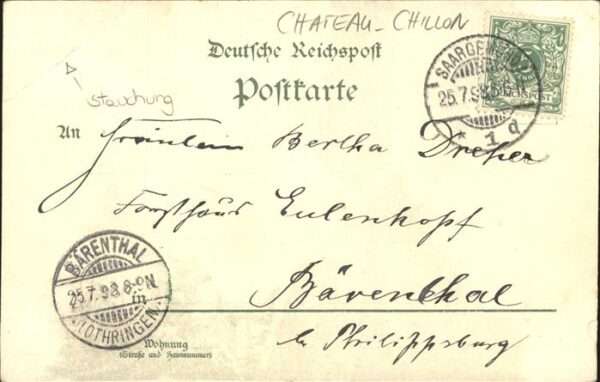 CHATEAU - CHILLON
Deutsche Reichspost
Postkarte
stauchung
SAARGEMÜND
25.7.98
* 1 d
An Fräulein Bertha Dreher
Forsthaus Eulenkopf
Bärenthal
b. Philippsburg
BÄRENTHAL
25.7.98 6-9N
in
LOTHRINGEN
Wohnung
(Straße und Hausnummer)